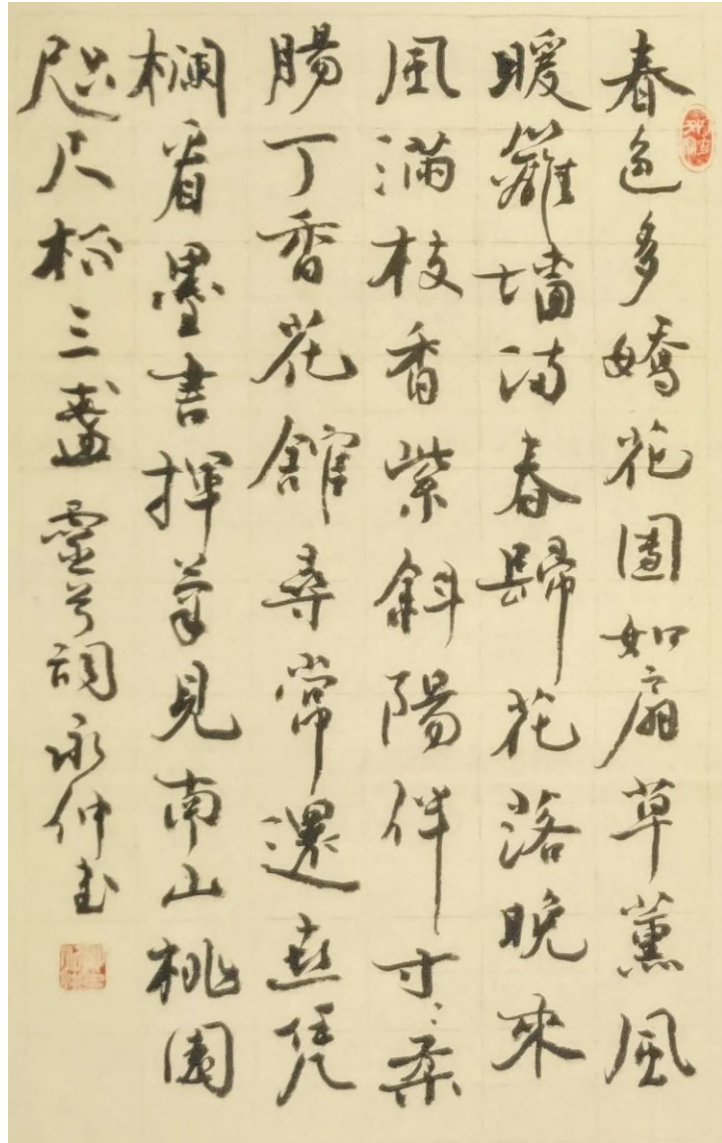 春色多嬌花園如扇草薰風
暖籬墻満春歸花落晚來
風滿枝香紫斜陽伴寸々柔
腸丁香花館尋常還燕凭
欄看墨書揮筆見南山桃園
咫尺栢三盞靈兮詞永仲书